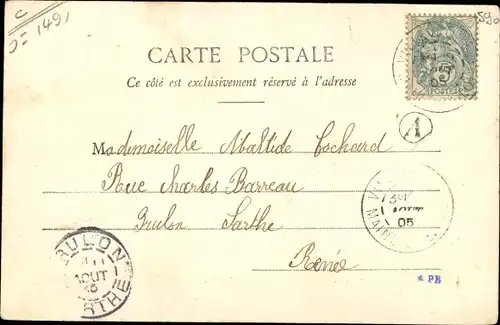 C
J= 1491
590
CARTE POSTALE
Ce côté est exclusivement réservé à l'adresse
5
POSTES
05
A
Mademoiselle Maltide Cochard
Rue Charles Barreau
Brulon Sarthe
Renée
13
AOUT
05
BRULON
AOUT
05
SARTHE
* PB